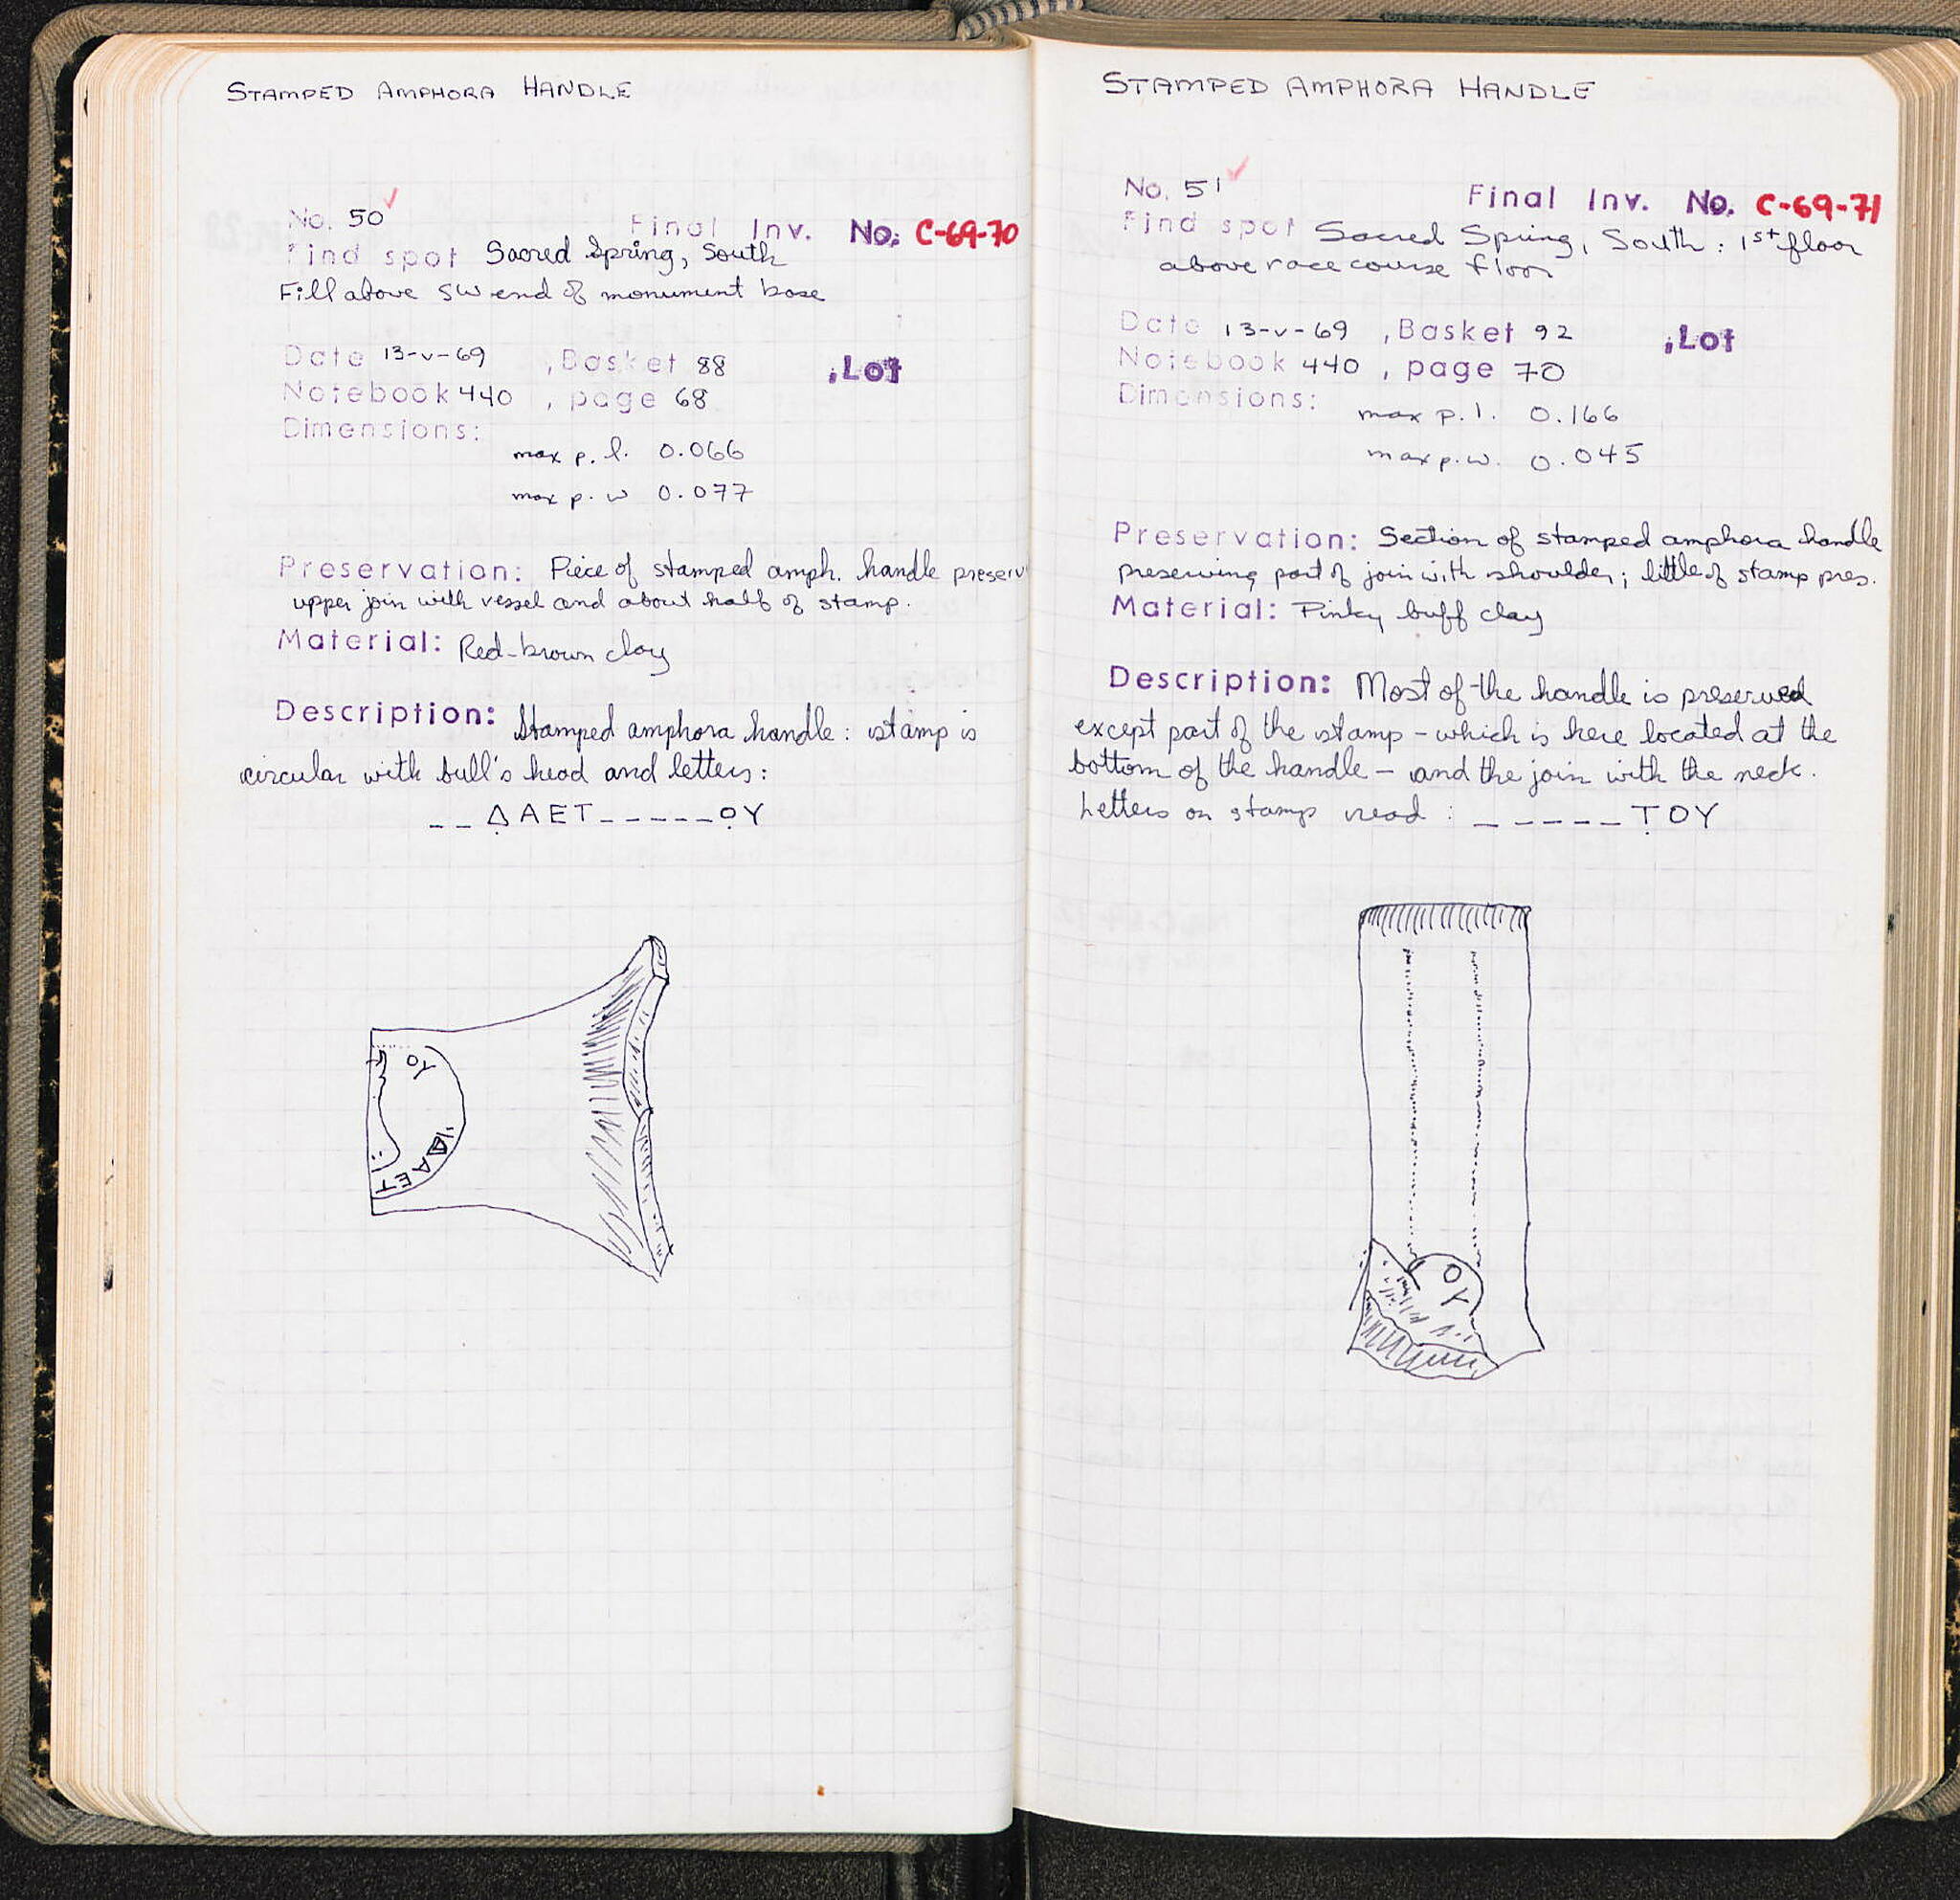 STAMPED AMPHORA HANDLE
No. 50 Final Inv. No. C-69-70
Find spot Sacred Spring, South
Fill above SW end of monument base
Date 13-V-69 , Basket 88 , Lot
Notebook 440 , page 68
Dimensions:
max p. l. 0.066
max p. w 0.077
Preservation: Piece of stamped amph. handle preserv
upper join with vessel and about half of stamp.
Material: Red-brown clay
Description: Stamped amphora handle: stamp is
circular with bull's head and letters:
_ _ Δ̣ A E T _ _ _ _ _ Ọ Y
OY
ΔAET
STAMPED AMPHORA HANDLE
No. 51 Final Inv. No. C-69-71
Find spot Sacred Spring, South: 1st floor
above racecourse floor
Date 13-V-69 , Basket 92 , Lot
Notebook 440 , page 70
Dimensions:
max p. l. 0.166
max p. w. 0.045
Preservation: Section of stamped amphora handle
preserving part of join with shoulder; little of stamp pres.
Material: Pinky buff clay
Description: Most of the handle is preserved
except part of the stamp - which is here located at the
bottom of the handle - and the join with the neck.
Letters on stamp read: _ _ _ _ _ _ Ṭ O Y
OY